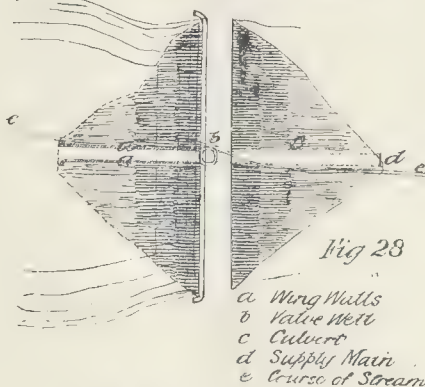 c
b
d
e
Fig 28
a Wing Walls
b Valve Well
c Culvert
d Supply Main
e Course of Stream